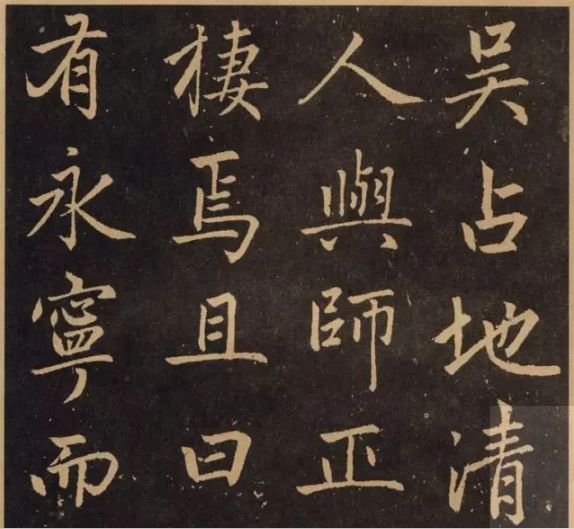 吳占地清
人與師正
棲焉且曰
有永寧而